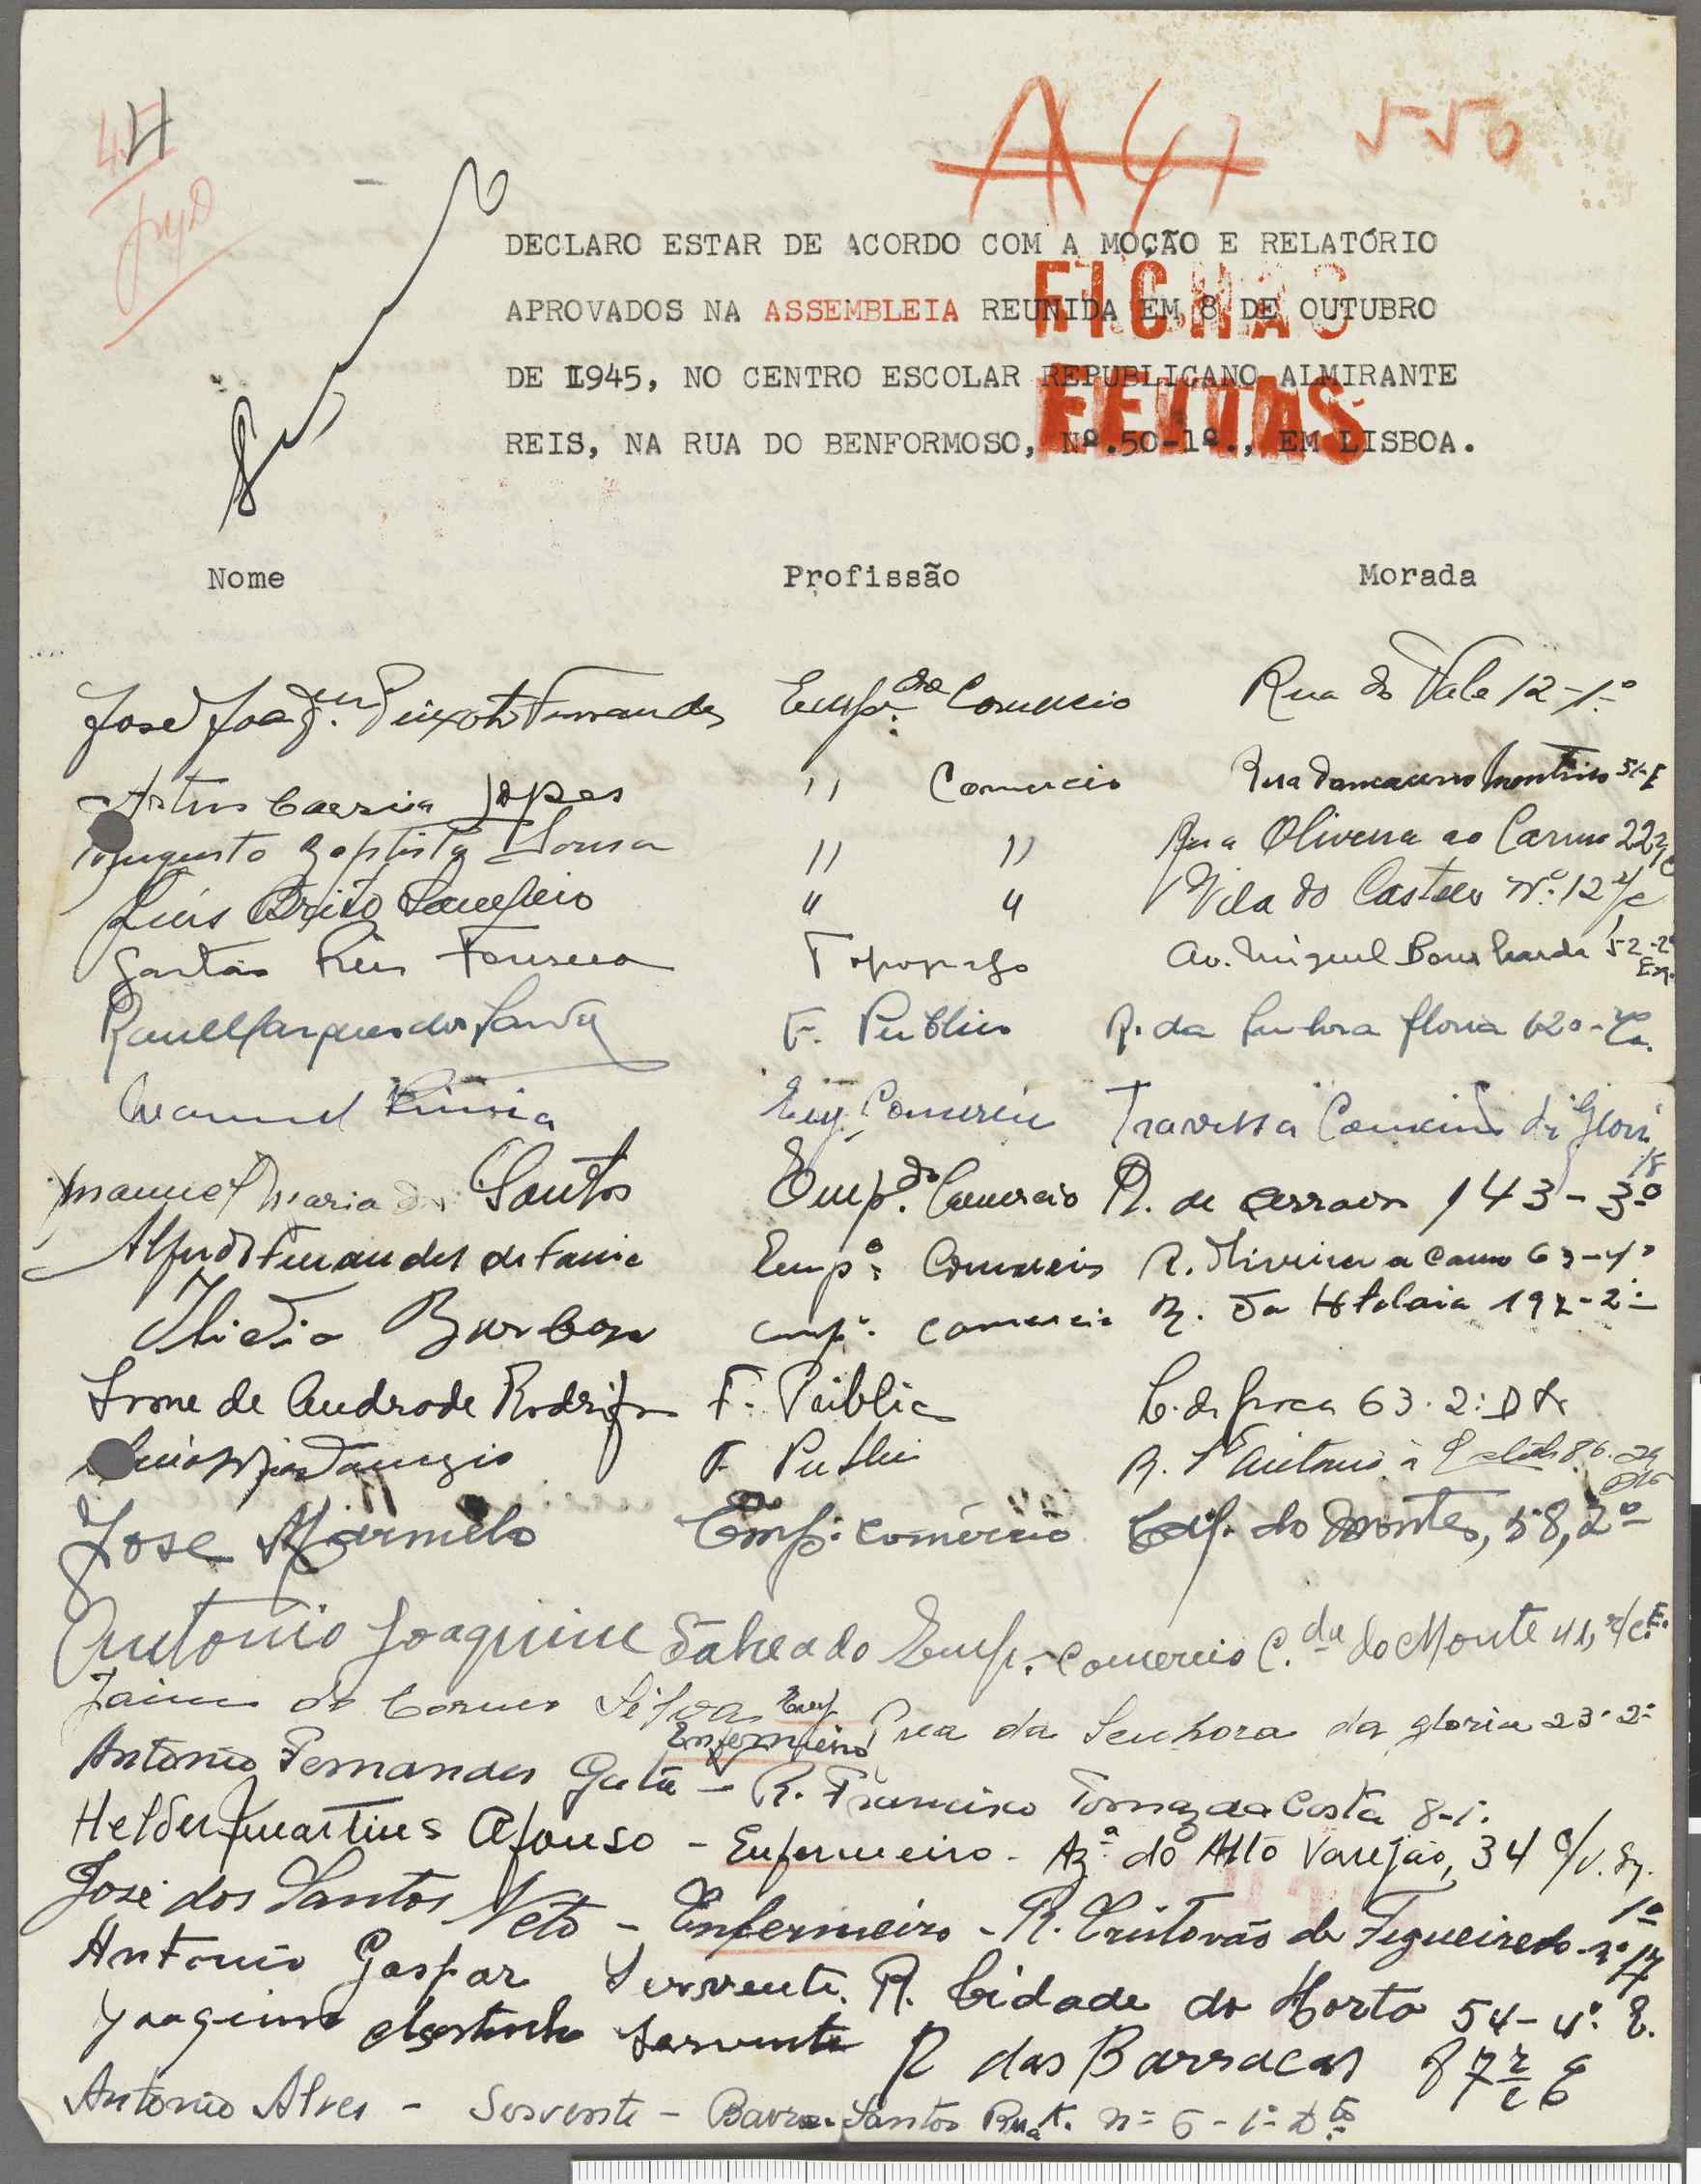 A 41 550
DECLARO ESTAR DE ACORDO COM A MOÇÃO E RELATÓRIO
APROVADOS NA ASSEMBLEIA REUNIDA EM 8 DE OUTUBRO
FICHAS
DE 1945, NO CENTRO ESCOLAR REPUBLICANO ALMIRANTE
FEITAS
REIS, NA RUA DO BENFORMOSO, Nº.50-1º., EM LISBOA.
Nome Profissão Morada
José Joaqm. Peixoto Fernandes Empº. do Comercio Rua do Vale 12-1.º
Artur Garcia Lopes " Comercio Rua
Augusto Baptista Sousa " " Rua Oliveira ao Carmo 22
Luís Brito " " Vila do Castelo Nº. 12 r/c
Gastão Reis Fonseca Topografo Av. Miguel Bombarda 52-2º Esq.
Raul Marques dos F. Publico R. da Senhora Gloria 120
Manuel Emp. Comercio Travessa da Gloria 18
Manuel Maria dos Santos Emp. do Comercio R. de Arroios 143-3º
Alfredo Fernandes de Faria Empº. Comercio R. Oliveira ao Carmo 63-4º
Ilidio Barbosa empº. comercio R. da Atalaia 192-2º
de Andrade Rodrigues F. Público C. da Graça 63.2º Dt
F. Publico R. Stº António à 86
José Marmelo Empº. comércio Calç. do Monte, 58, 2º
Antonio Joaquim Salteado Emp. Comercio C.da do Monte 41, r/c E.
Jaime do Carmo Silva Emp. Rua da Senhora da gloria 23-2º
Enfermeiro
Antonio Fernandes Gata - R. Francisco Tomaz da Costa 8-1º.
Helder Martins Afonso - Enfermeiro - Azª. do Alto Varejão, 34 c/v. Eq.
José dos Santos Neto - Enfermeiro - R. Cristovão de Figueiredo nº 17 1º
Antonio Gaspar Servente. R. Cidade da Horta 54-4º. E.
Joaquim Agostinho Servente R das Barracas 87 r/c E
Antonio Alves - Servente - Bairro Santos Rua K. nº 6-1º Dto